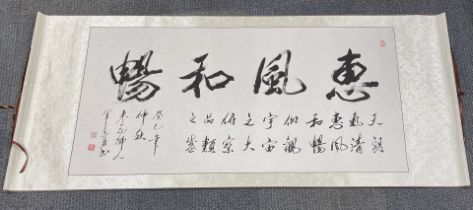 惠風和暢
天朗
氣清
惠風
和暢
仰觀
宇宙
之大
俯察
品類
之盛
癸巳年
仲秋